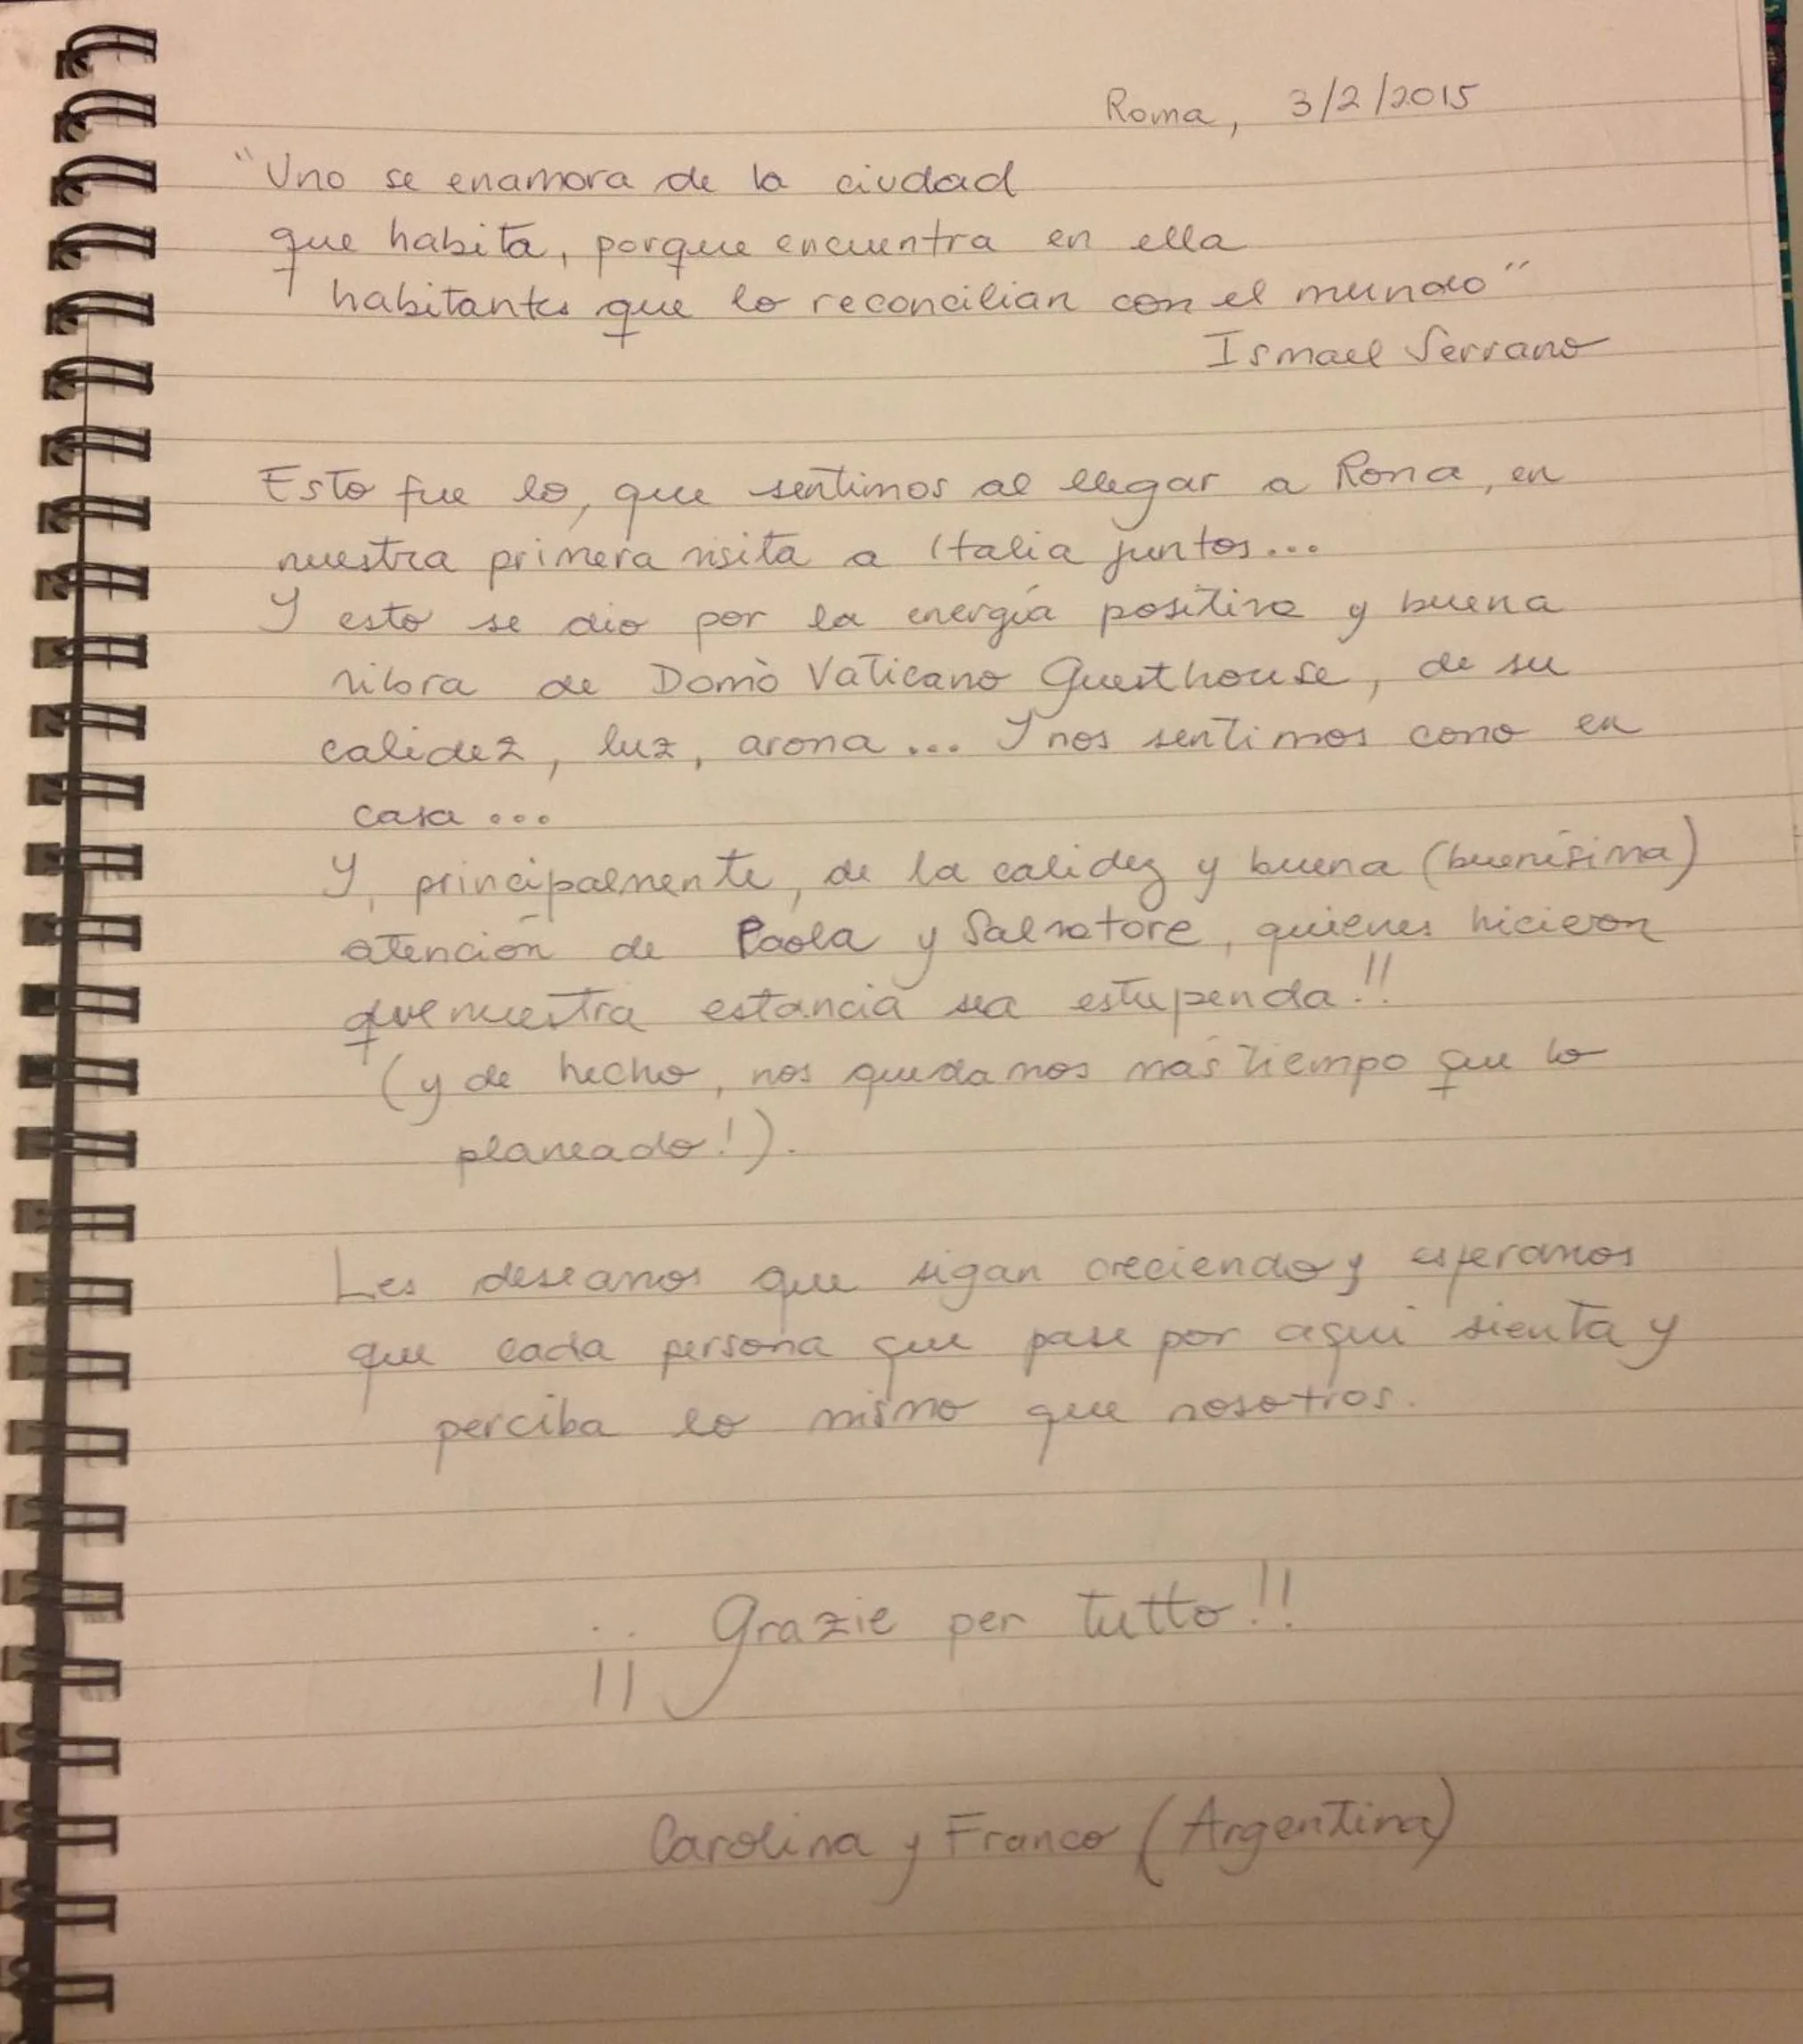 Roma, 3/2/2015
"Uno se enamora de la ciudad
que habita, porque encuentra en ella
habitantes que lo reconcilian con el mundo"
Ismael Serrano
Esto fue lo, que sentimos al llegar a Roma, en
nuestra primera visita a Italia juntos...
Y esto se dio por la energía positiva y buena
vibra de Domò Vaticano Guesthouse, de su
calidez, luz, aroma... Y nos sentimos como en
casa...
Y, principalmente, de la calidez y buena (buenísima)
atención de Paola y Salvatore, quienes hicieron
que nuestra estancia sea estupenda!!
(y de hecho, nos quedamos más tiempo que lo
planeado!).
Les deseamos que sigan creciendo y esperamos
que cada persona que pase por aquí sienta y
perciba lo mismo que nosotros.
¡¡ Grazie per tutto!!
Carolina y Franco (Argentina)